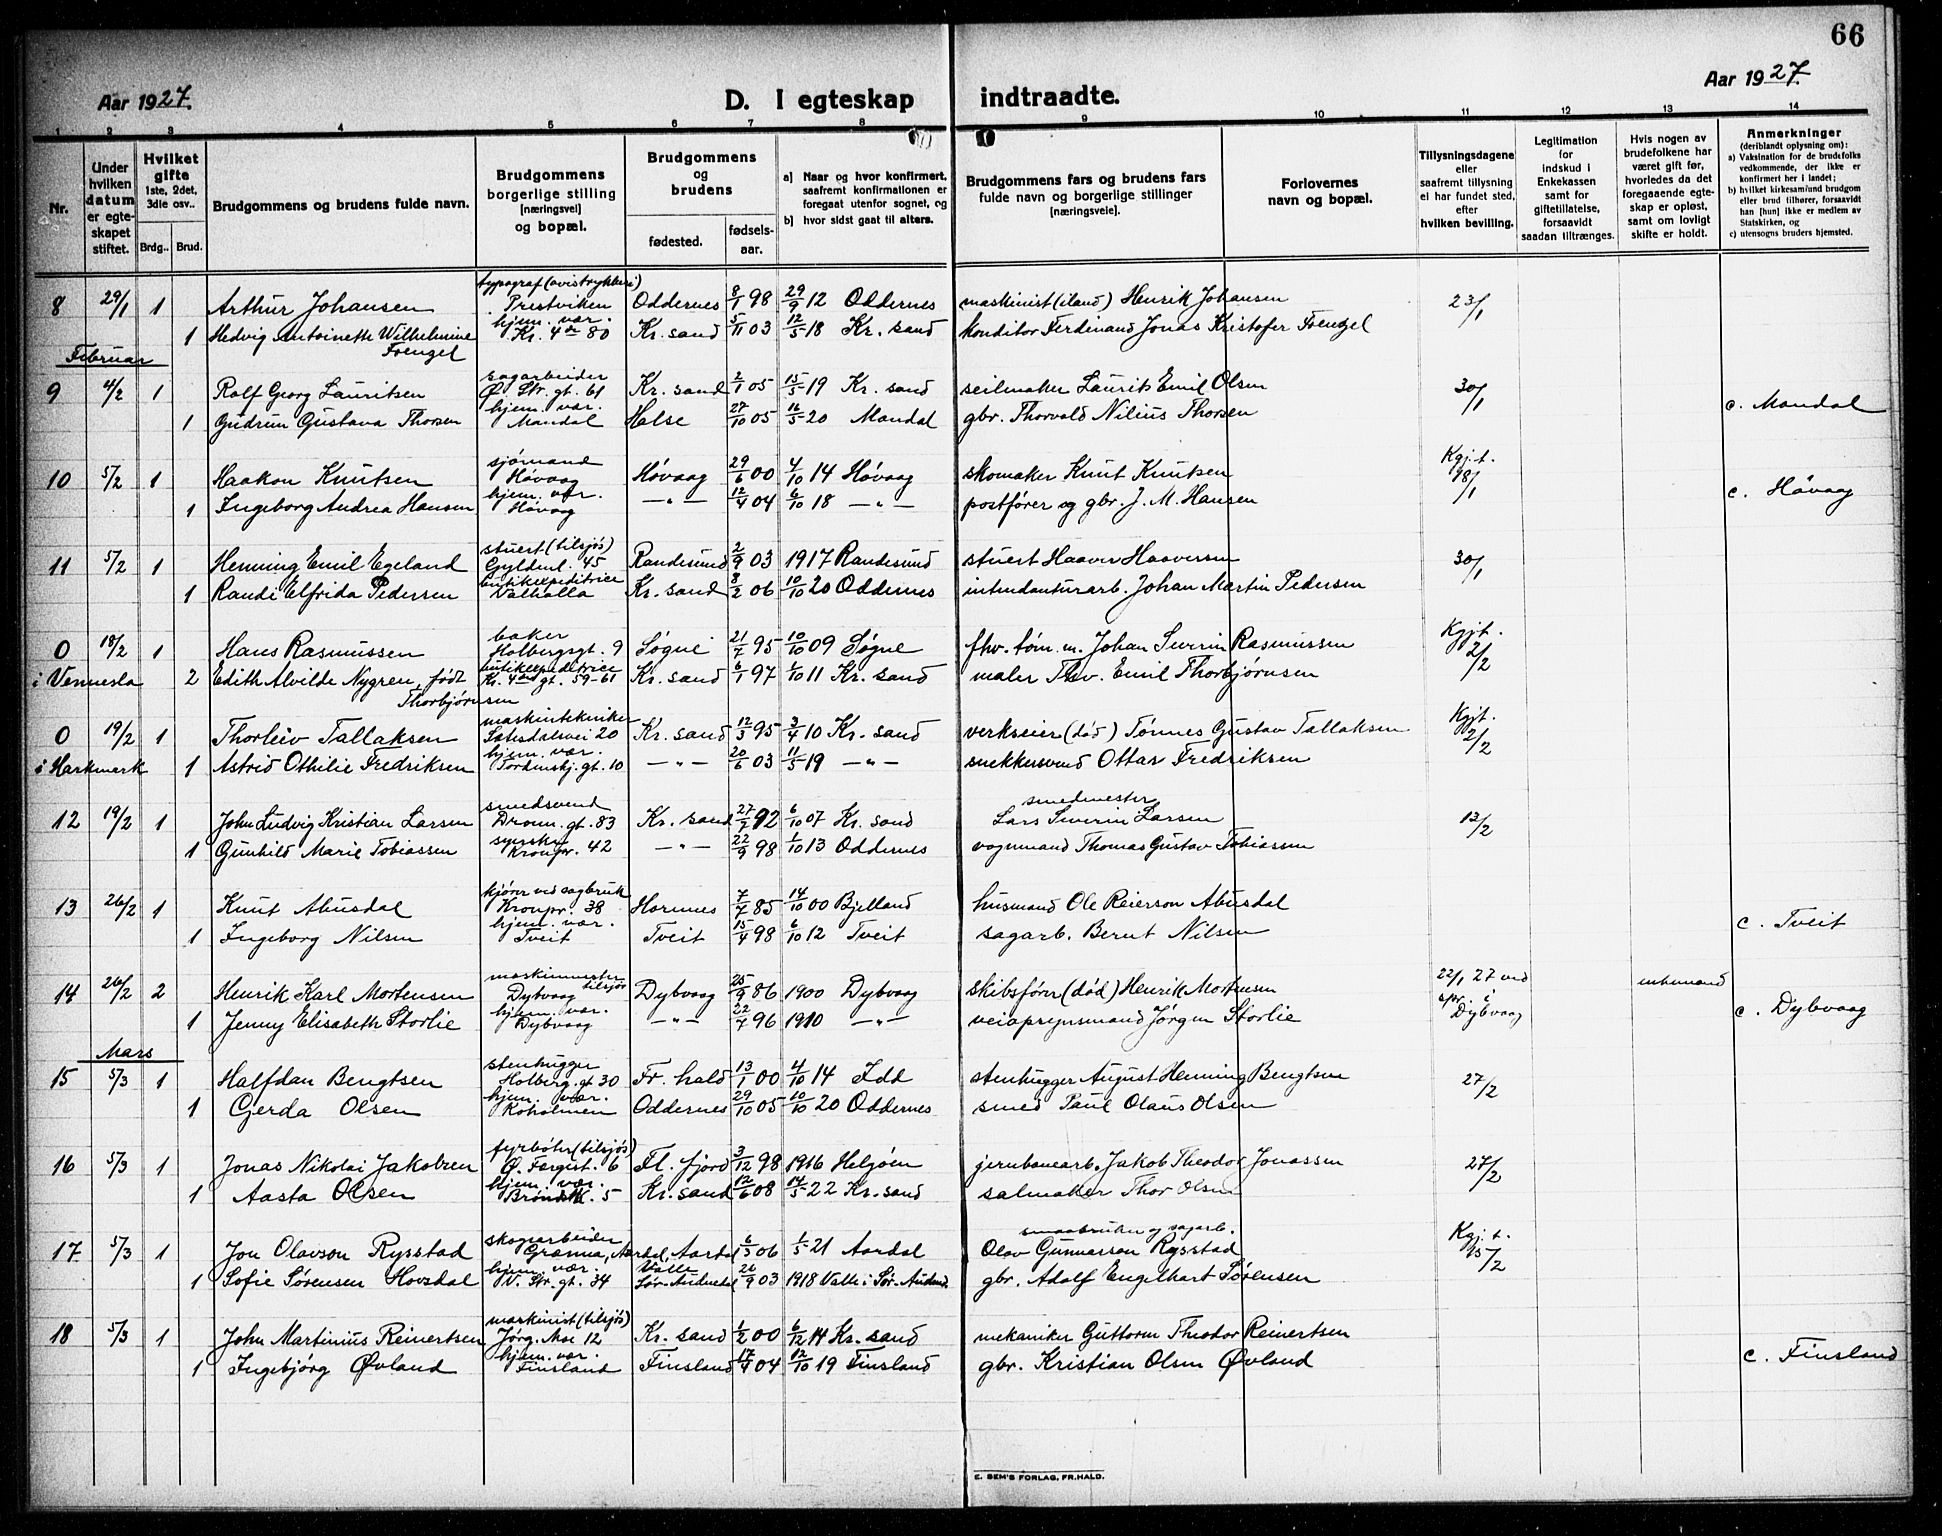 66
Aar 1927.
D. I egteskap indtraadte.
Aar 1927.
1 2 3 4 5 6 7 8 9 10 11 12 13 14
Nr.
Under hvilken datum er egteskapet stiftet.
Hvilket gifte 1ste, 2det, 3die osv..
Brdg.. Brud.
Brudgommens og brudens fulde navn.
Brudgommens borgerlige stilling [næringsvei] og bopæl.
Brudgommens og brudens
fødested. fødselsaar.
a) Naar og hvor konfirmert, saafremt konfirmationen er foregaat utenfor sognet, og
b) hvor sidst gaat til alters.
Brudgommens fars og brudens fars fulde navn og borgerlige stillinger [næringsveie].
Forlovernes navn og bopæl.
Tillysningsdagene eller saafremt tillysning ei har fundet sted, efter hvilken bevilling.
Legitimation for indskud i Enkekassen samt for giftetillatelse, forsaavidt saadan tiltrænges.
Hvis nogen av brudefolkene har været gift før, hvorledes da det foregaaende egteskap er opløst, samt om lovligt skifte er holdt.
Anmerkninger (deriblandt oplysning om):
a) Vaksination for de brudefolks vedkommende, der ikke er konfirmert her i landet;
b) hvilket kirkesamfund brudgom eller brud tilhører, forsaavidt han [hun] ikke er medlem av Statskirken, og
c) utensogns bruders hjemsted.
8 29/1 1 Arthur Johansen typograf (avistrykkeri) Prestviken Oddernes 8/1 98 29/9 12 Oddernes maskinist (iland) Henrik Johansen 23/1
1 Hedvig Antoinette Wilhelmine Foengel hjem. vær. Kr. 4des 80 Kr. sand 5/11 03 12/5 18 Kr. sand konditor Ferdinand Jonas Kristofer Foengel
Februar
9 4/2 1 Ralf Georg Lauritsen sagarbeider Ø. Str. gt. 61 Kr. sand 2/1 05 15/5 19 Kr. sand seilmaker Laurits Emil Olsen 30/1
1 Gudrun Gustava Thorsen hjem. vær. Mandal Halse 27/10 05 16/5 20 Mandal gbr. Thorvald Nilius Thorsen c. Mandal
10 5/2 1 Haakon Knutsen sjømand Høvaag Høvaag 29/6 00 4/10 14 Høvaag skomaker Knut Knutsen Kgj.t. 18/1
1 Ingeborg Andrea Hansen hjem. vær. Høvaag —"— 12/4 04 6/10 18 —"— postfører og gbr. J. M. Hansen c. Høvaag
11 5/2 1 Henning Emil Egeland stuert (tilsjøs) Gyldenl. 45 Randesund 2/9 03 1917 Randesund stuert Haaver Haaversen 30/1
1 Randi Elfrida Pedersen butikexpeditrice Valhalla Kr. sand 8/2 06 10/10 20 Oddernes intendanturarb. Johan Martin Pedersen
0 18/2 1 Hans Rasmussen baker Holbergsgt. 9 Søgne 21/7 95 10/10 09 Søgne fhv. tøm. m. Johan Severin Rasmussen Kgjt. 2/2
i Vennesla 2 Edith Alvilde Nygren, født Thorbjørnsen butikexpeditrice Kr. 4des gt. 59-61 Kr. sand 6/1 97 1/10 11 Kr. sand maler Thv. Emil Thorbjørnsen
0 19/2 1 Thorleiv Tallaksen maskintekniker Setesdalsvei 20 Kr. sand 12/3 95 3/4 10 Kr. sand verkseier (død) Tønnes Gustav Tallaksen Kgjt. 2/2
i Harkmark 1 Astrid Othilie Fredriksen hjem. vær. Tordenskj. gt. 10 —"— 20/6 03 11/5 19 —"— snekkersvend Ottar Fredriksen
12 19/2 1 John Ludvig Kristian Larsen smedsvend Dronn. gt. 83 Kr. sand 27/7 92 6/10 07 Kr. sand smedmester Lars Severin Larsen 13/2
1 Gunhild Marie Tobiassen syerske Kronpr. 42 —"— 22/9 98 1/10 13 Oddernes vognmand Thomas Gustav Tobiassen
13 26/2 1 Knut Abusdal kjører ved sagbruk Kronpr. 38 Hornnes 7/7 85 14/10 00 Bjelland husmand Ole Reierson Abusdal
1 Ingeborg Nilsen hjem. vær. Tveit Tveit 15/4 98 6/10 12 Tveit sagarb. Bernt Nilsen c. Tveit
14 26/2 2 Henrik Karl Mortensen maskinmester tilsjøs Dybvaag Dybvaag 25/9 86 1900 Dybvaag skibsfører (død) Henrik Mortensen 22/1 27 ved spr. i Dybvaag enkemand
1 Jenny Elisabeth Storlie hjem. vær. Dybvaag —"— 22/7 96 1910 —"— veiopsynsmand Jørgen Storlie c. Dybvaag
Mars
15 5/3 1 Halfdan Bengtsen stenhugger Holberg. gt 30 Fr. hald 13/1 00 4/10 14 Idd stenhugger August Henning Bengtsen 27/2
1 Gerda Olsen hjem. vær. Koholmen Oddernes 29/10 05 10/10 20 Oddernes smed Paul Olaus Olsen
16 5/3 1 Jonas Nikolai Jakobsen fyrbøter (tilsjøs) Ø. Færgest. 6 Fl. fjord 3/12 98 1916 Helgøen jernbanearb. Jakob Theodor Jonassen 27/2
1 Aasta Olsen hjem. vær. 5 Kr. sand 12/6 08 14/5 22 Kr. sand salmaker Thor Olsen
17 5/3 1 Jon Olavson Rysstad skogarbeider Granna, Aardal, Aardal 6/3 06 1/5 21 Aardal smaabruker og sagarb. Olav Gunnarson Rysstad Kgj.t. 15/2
1 Sofie Sørensen Hovsdal hjem. vær. V. Str. gt. 34 Valle Sør-Audnedal 26/9 03 1918 Valle i Sør-Audned. gbr. Adolf Engelhart Sørensen
18 5/3 1 John Martinius Reinertsen maskinist (tilsjøs) Jørg. Moe 12 Kr. sand 1/2 00 6/12 14 Kr. sand mekaniker Guttorm Theodor Reinertsen
1 Ingebjørg Øvland hjem. vær. Finsland Finsland 17/4 04 12/10 19 Finsland gbr. Kristian Olsen Øvland c. Finsland
E. SEM'S FORLAG, FR.HALD.